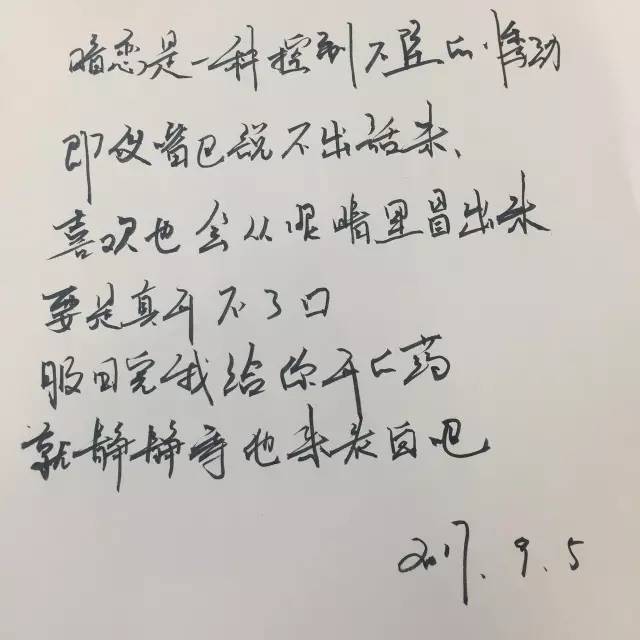 暗恋是一种控制不住的悸动
即使嘴巴说不出话来、
喜欢也会从眼睛里冒出来
要是真开不了口
服用完我给你开的药
就静静等他来表白吧
2017.9.5